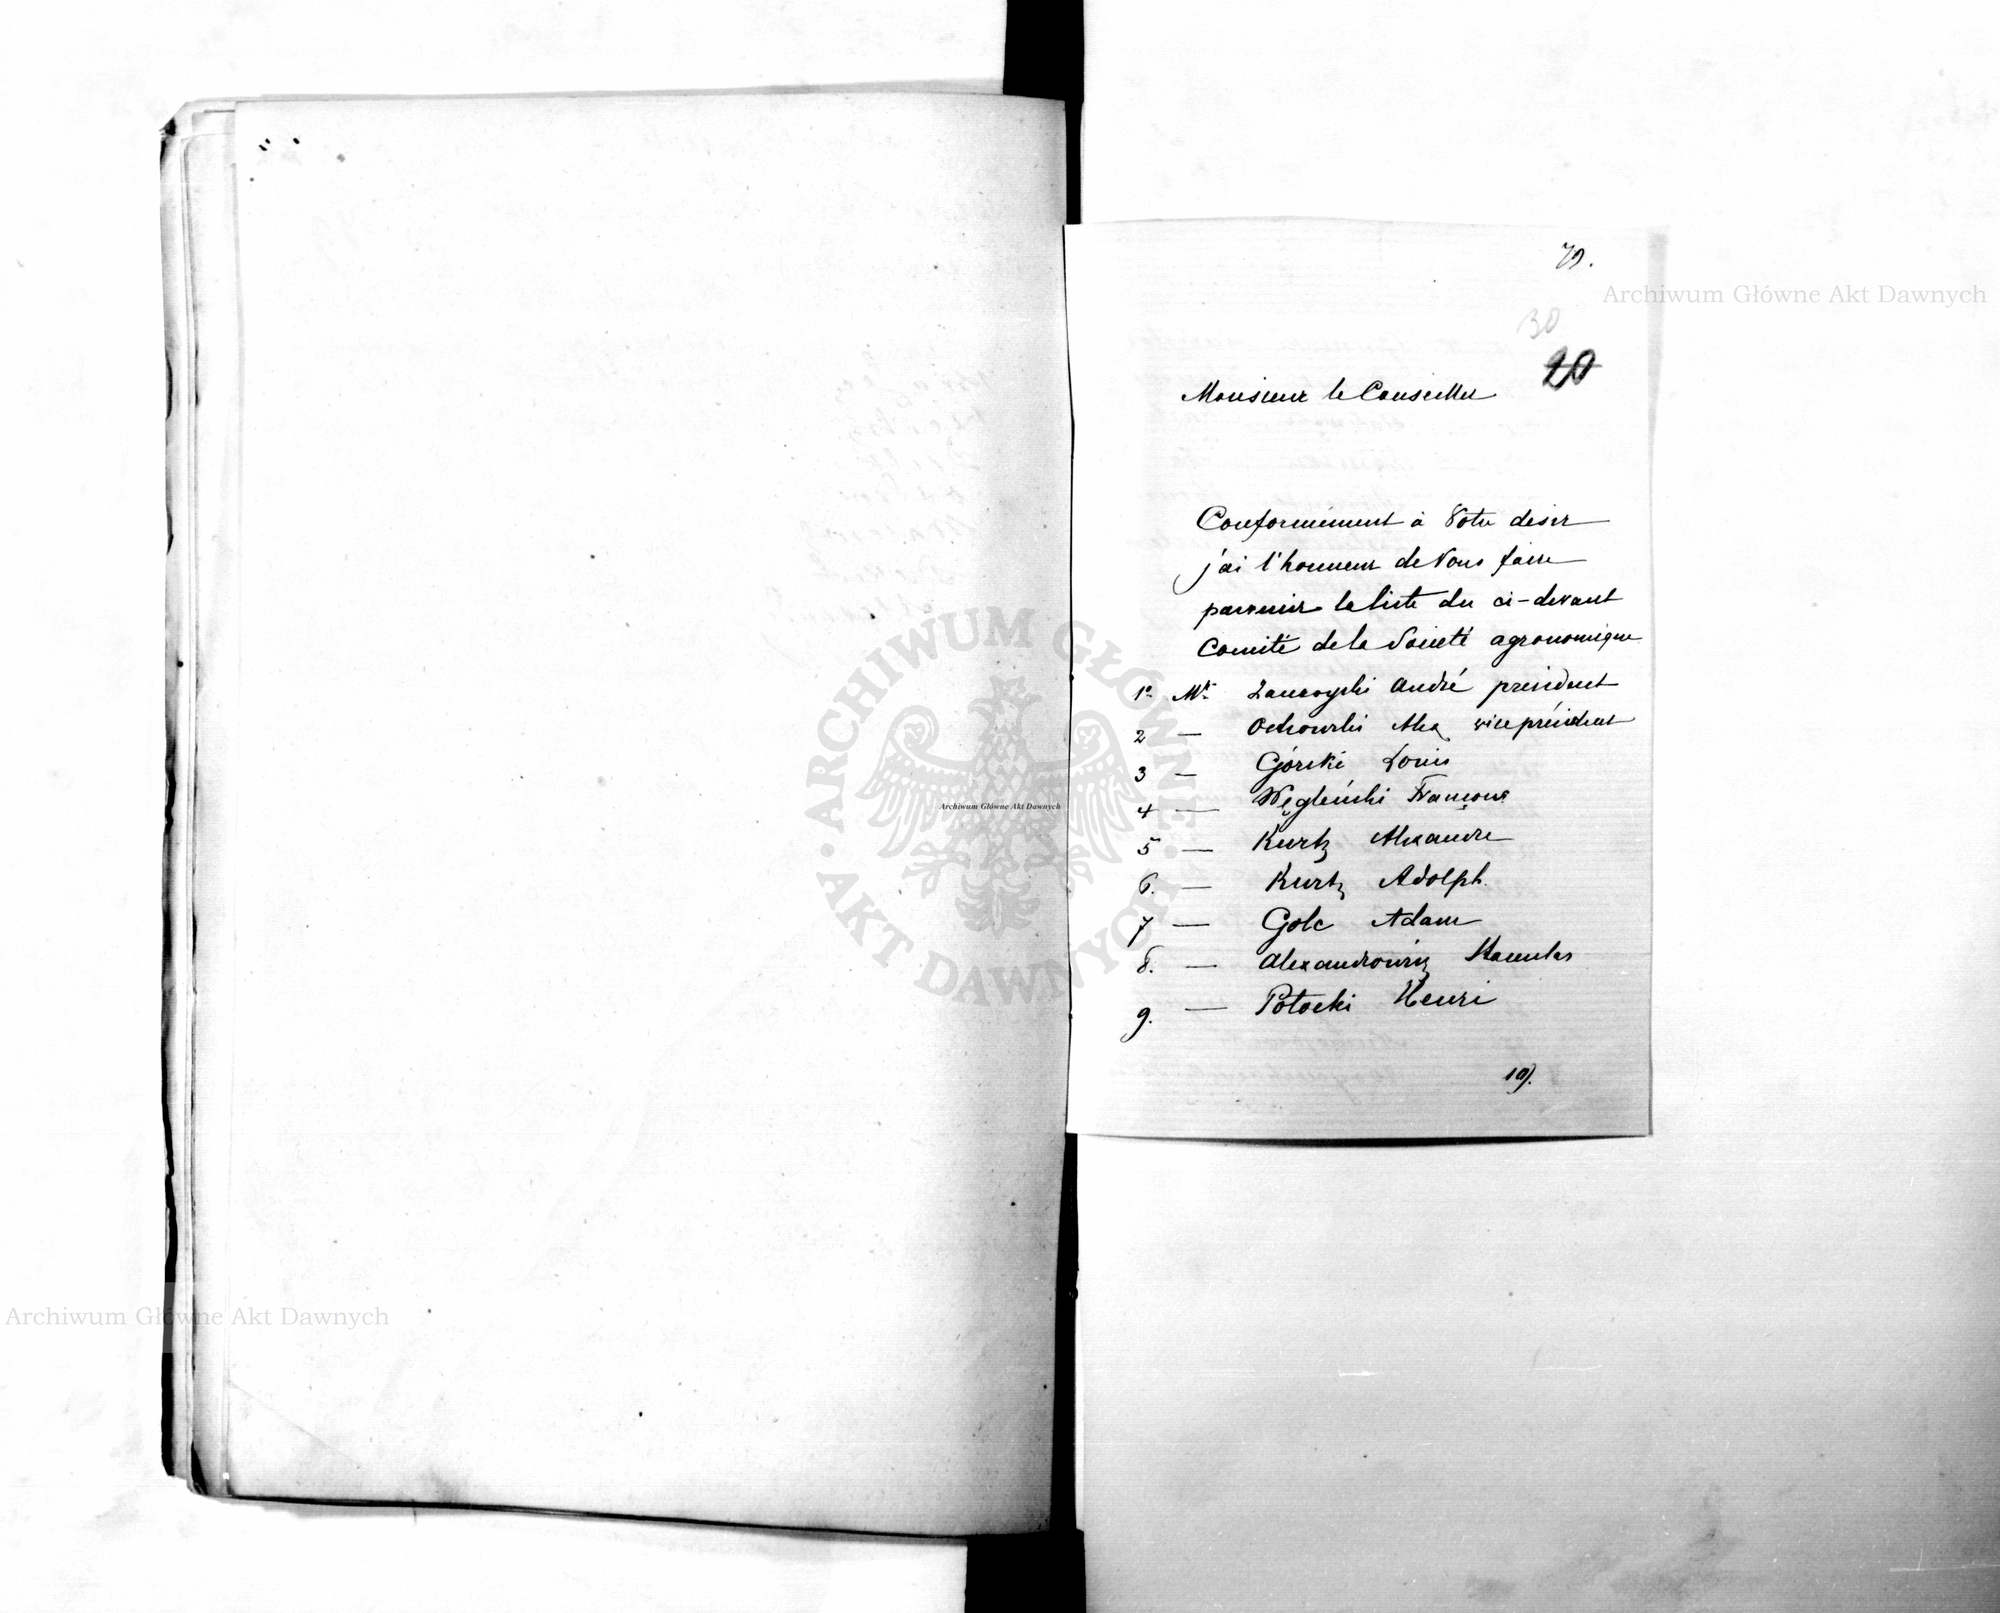 79.
Archiwum Główne Akt Dawnych
30
20
Monsieur le Conseiller
Conformement à Votre desir
j'ai l'honneur de Vous faire
parvenir la liste du ci-devant
Comité de la Société agronomique
1° Mr Zamoyski André president
2 — Ostrowski Alex vice président
3 — Górski Louis
4 — Węgleński François
5 — Kurtz Alexandre
6. — Kurtz Adolph.
7 — Golc Adam
8. — Alexandrowicz Stanislas
9. — Potocki Henri
ARCHIWUM GŁÓWNE AKT DAWNYCH
Archiwum Główne Akt Dawnych
Archiwum Główne Akt Dawnych